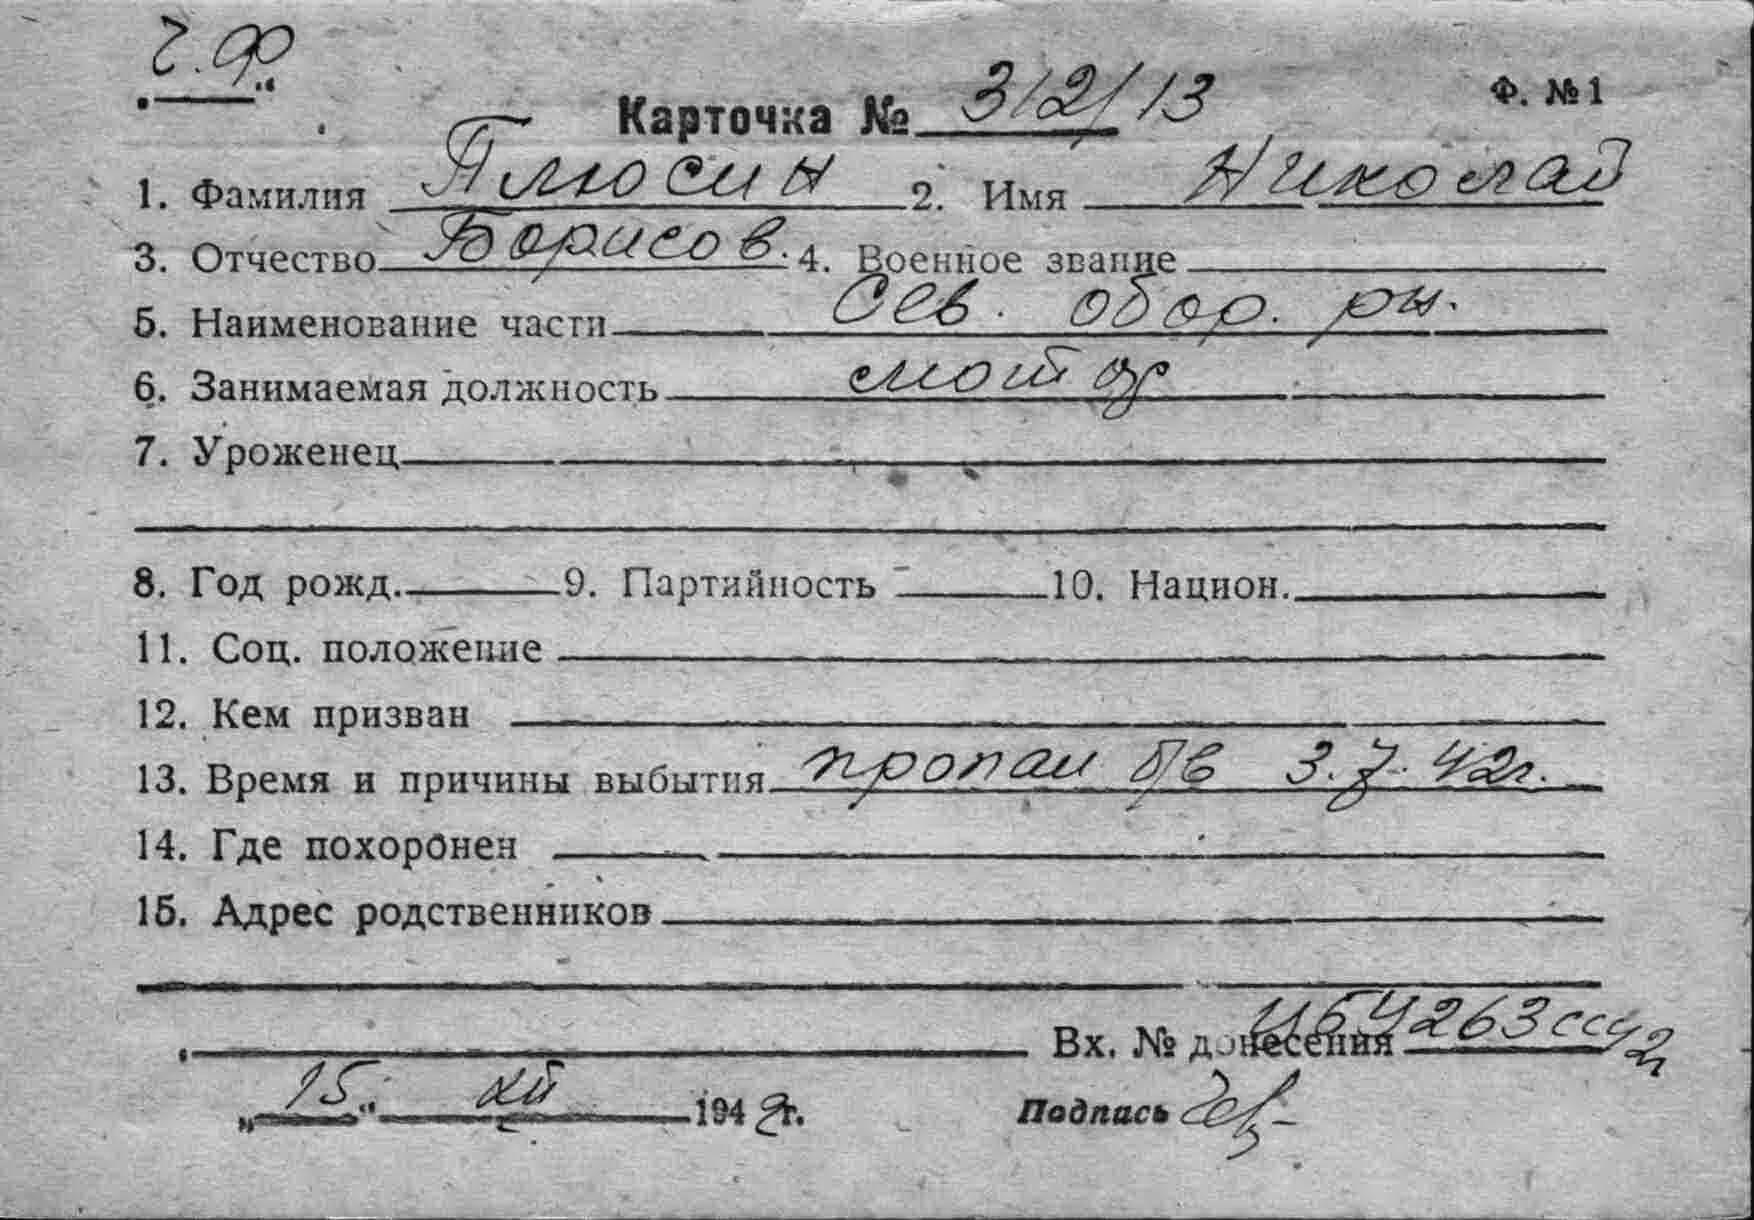 Ч.Ф.
Карточка № 312/13 Ф. № 1
1. Фамилия Плюсин 2. Имя Николай
3. Отчество Борисов. 4. Военное звание
5. Наименование части Сев. обор. рн.
6. Занимаемая должность
7. Уроженец
8. Год рожд. 9. Партийность 10. Национ.
11. Соц. положение
12. Кем призван
13. Время и причины выбытия пропал б/в 3.7.42г.
14. Где похоронен
15. Адрес родственников
Вх. № донесения
„15“ XII 1942г. Подпись